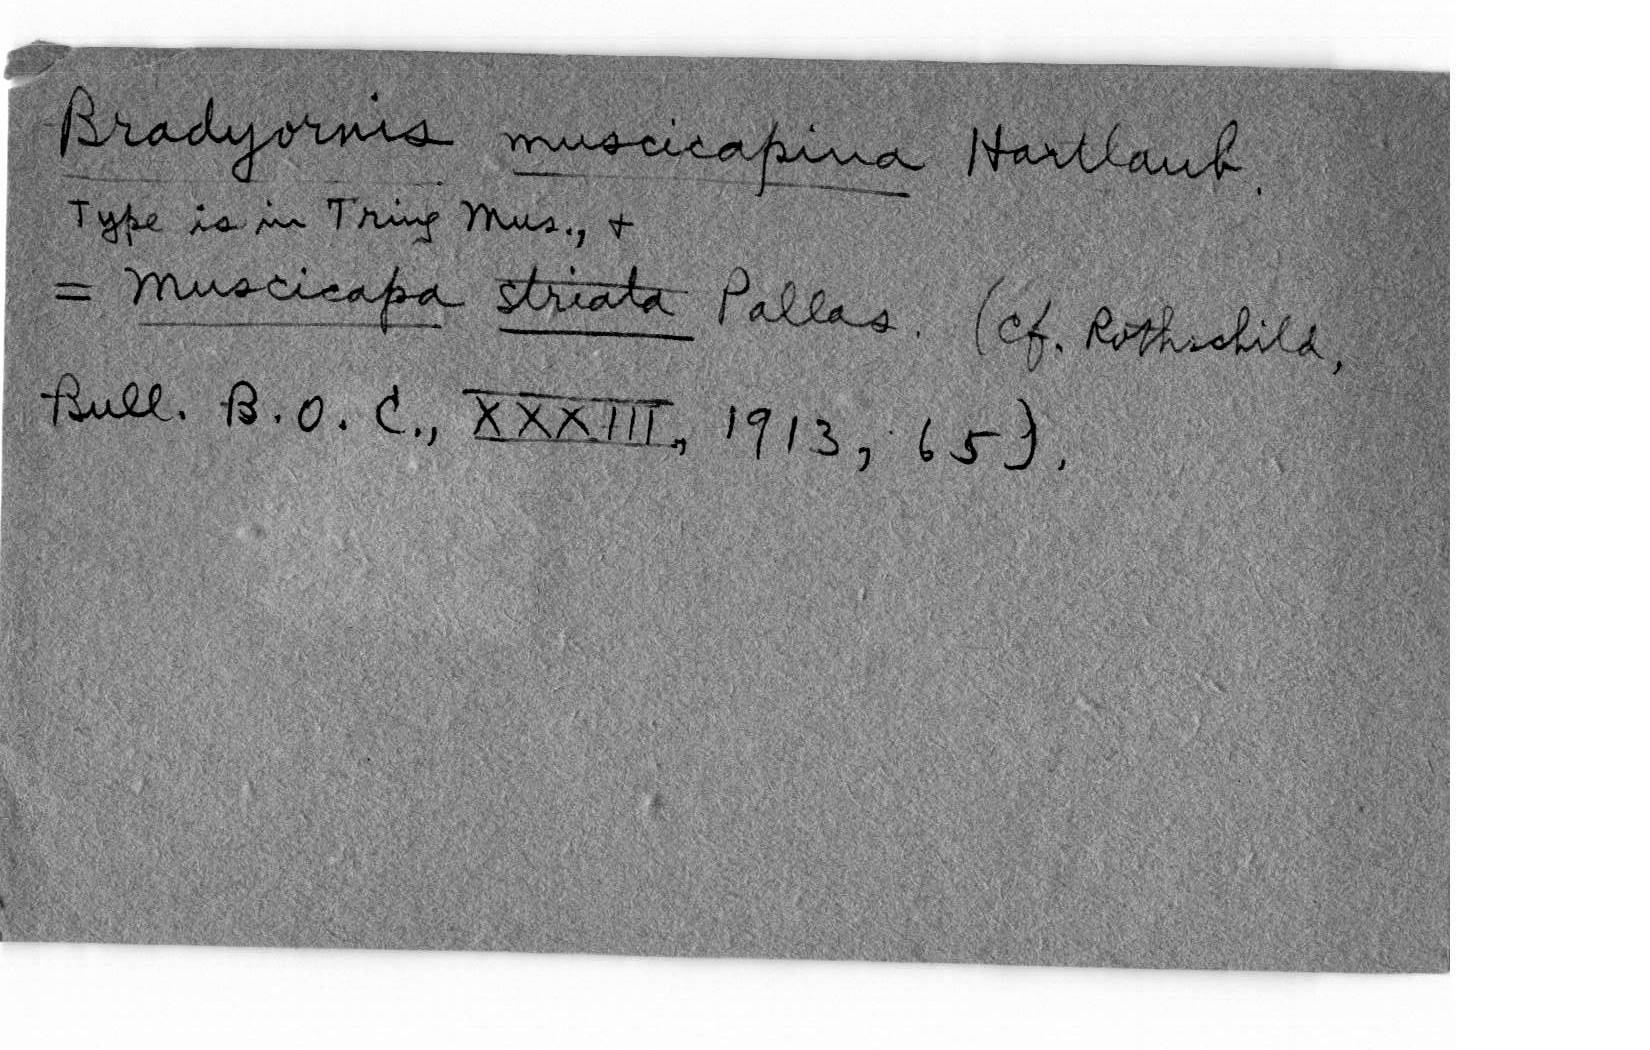 Bradyornis muscicapina Hartlaub.
Type is in Tring Mus., +
= Muscicapa striata Pallas. (cf. Rothschild,
Bull. B.O.C., XXXIII, 1913, 65).